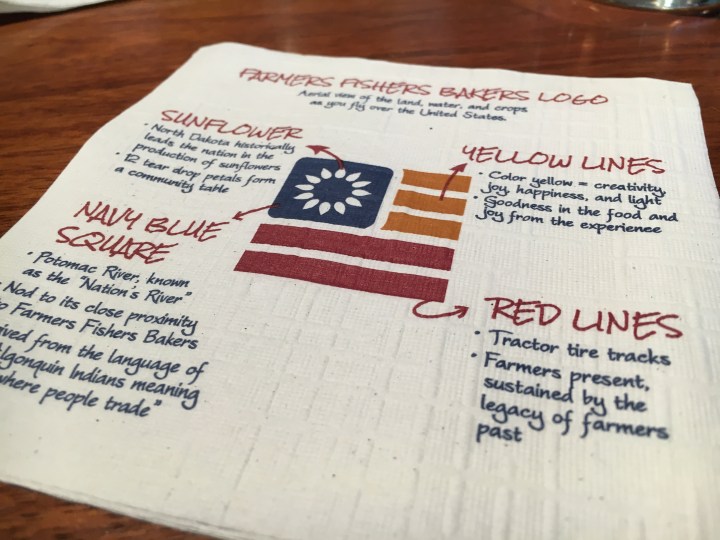 FARMERS FISHERS BAKERS LOGO
Aerial view of the land, water, and crops
as you fly over the United States.
SUNFLOWER
• North Dakota historically
leads the nation in the
production of sunflowers
• 12 tear drop petals form
a community table
YELLOW LINES
• Color yellow = creativity,
joy, happiness, and light
• Goodness in the food and
joy from the experience
NAVY BLUE
SQUARE
• Potomac River, known
as the "Nation's River"
Nod to its close proximity
Farmers Fishers Bakers
from the language of
Indians meaning
people trade"
RED LINES
• Tractor tire tracks
• Farmers present,
sustained by the
legacy of farmers
past